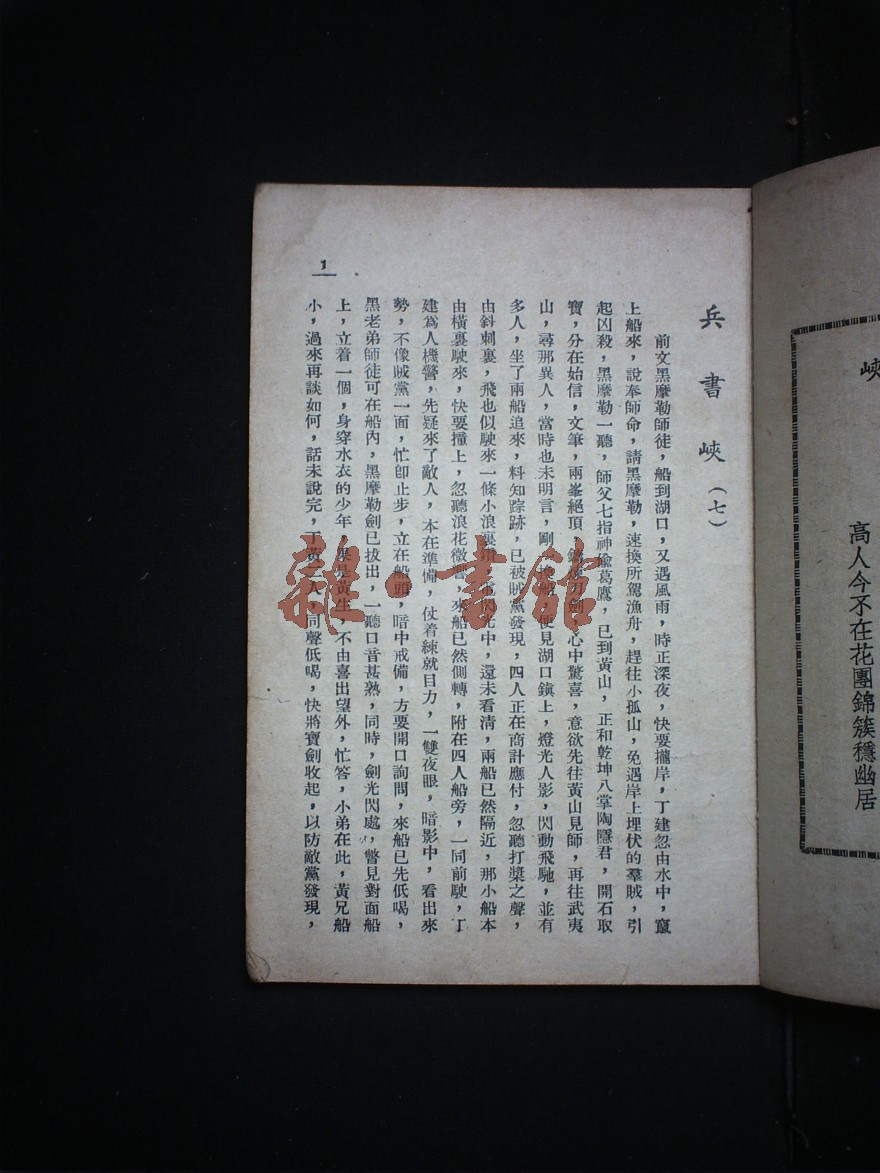 峽
高人今不在花團錦簇穩幽居
兵書峽（七）
前文黑摩勒師徒，船到湖口，又遇風雨，時正深夜，快要攏岸，丁建忽由水中，竄
上船來，說奉師命，請黑摩勒，速換所駕漁舟，趕往小孤山，免遇岸上埋伏的羣賊，引
起凶殺，黑摩勒一聽，師父七指神偷葛鷹，已到黃山，正和乾坤八掌陶隱君，開石取
寶，分在始信，文筆，兩峯絕頂，刀劍，心中驚喜，意欲先往黃山見師，再往武夷
山，尋那異人，當時也未明言，剛一換船，便見湖口鎮上，燈光人影，閃動飛馳，並有
多人，坐了兩船追來，料知踪跡，已被賊黨發現，四人正在商計應付，忽聽打槳之聲，
由斜刺裏，飛也似駛來一條小浪裏鑽，電閃光中，還未看清，兩船已然隔近，那小船本
由橫裏駛來，快要撞上，忽聽浪花微響，來船已然側轉，附在四人船旁，一同前駛，丁
建爲人機警，先疑來了敵人，本在準備，仗着練就目力，一雙夜眼，暗影中，看出來
勢，不像賊黨一面，忙卽止步，立在船頭，暗中戒備，方要開口詢問，來船已先低喝，
黑老弟師徒可在船內，黑摩勒劍已拔出，一聽口音甚熟，同時，劍光閃處，瞥見對面船
上，立着一個，身穿水衣的少年，果是黃生，不由喜出望外，忙答，小弟在此，黃兄船
小，過來再談如何，話未說完，丁黃二人，同聲低喝，快將寶劍收起，以防敵黨發現，
1
雜·書館